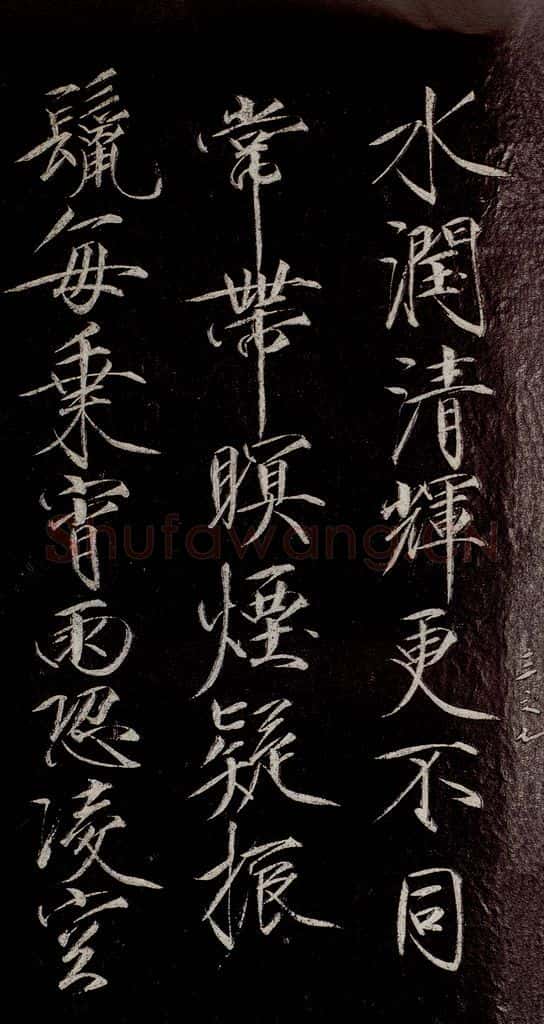 水潤清輝更不同
常帶暝煙疑振
鬣每乗宵雨恐陵空
Shufawang.CN